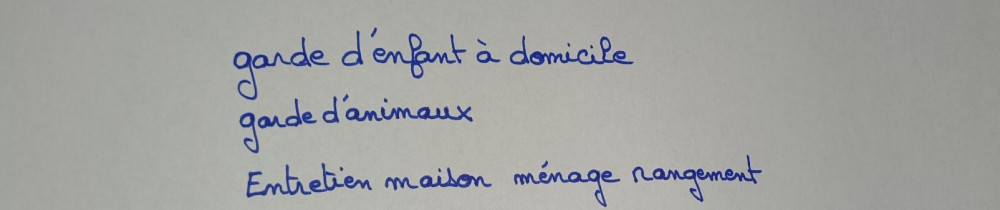 garde d'enfant à domicile
garde d'animaux
Entretien maison ménage rangement